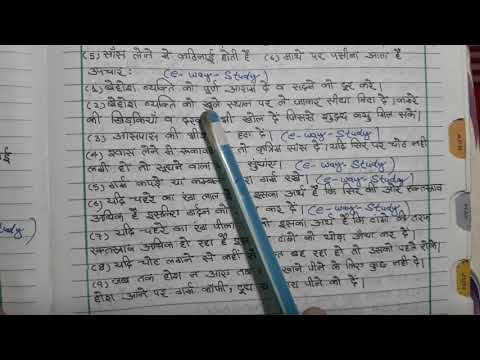 (5) साँस लेने से कठिनाई होती है (6) माथे पर पसीना आता है
उपचार: (e-way-Study)
(1) बेहोश व्यक्ति को पूर्ण आराम दें व सदमे को दूर करें।
(2) बेहोश व्यक्ति को खुले स्थान पर ले जाकर सीधा लिटा दें। कमरे
की खिड़कियाँ व खोल दें जिससे शुद्ध वायु मिल सके।
(3) आसपास की हटा दें। (e-way-Study)
(4) श्वास लेने में रुकावट तो कृत्रिम सांस दें। यदि सिर पर चोट नहीं
लगी हो तो सूंघने वाला सुंघाएं। (e-way-Study)
(5) गर्म कपड़े या कम्बल गर्म रखें। (e-way-Study)
(6) यदि चेहरे का रंग लाल इसका अर्थ है कि सिर की ओर रक्तस्त्राव
अधिक है इसलिए कर दें। (e-way-Study)
(7) यदि चेहरे का रंग पीला तो इसका अर्थ है कि टांगों की तरफ
रक्तस्त्राव अधिक हो रहा है टांगों को थोड़ा ऊँचा कर दें।
(8) यदि चोट लगने से कहीं से बह रहा हो तो उसको पहले रोकें।
(9) जब तक होश न आए तब खाने पीने के लिए कुछ नहीं दें।
होश आने पर गर्म कॉफी, दूध पीने को दें।
Study)